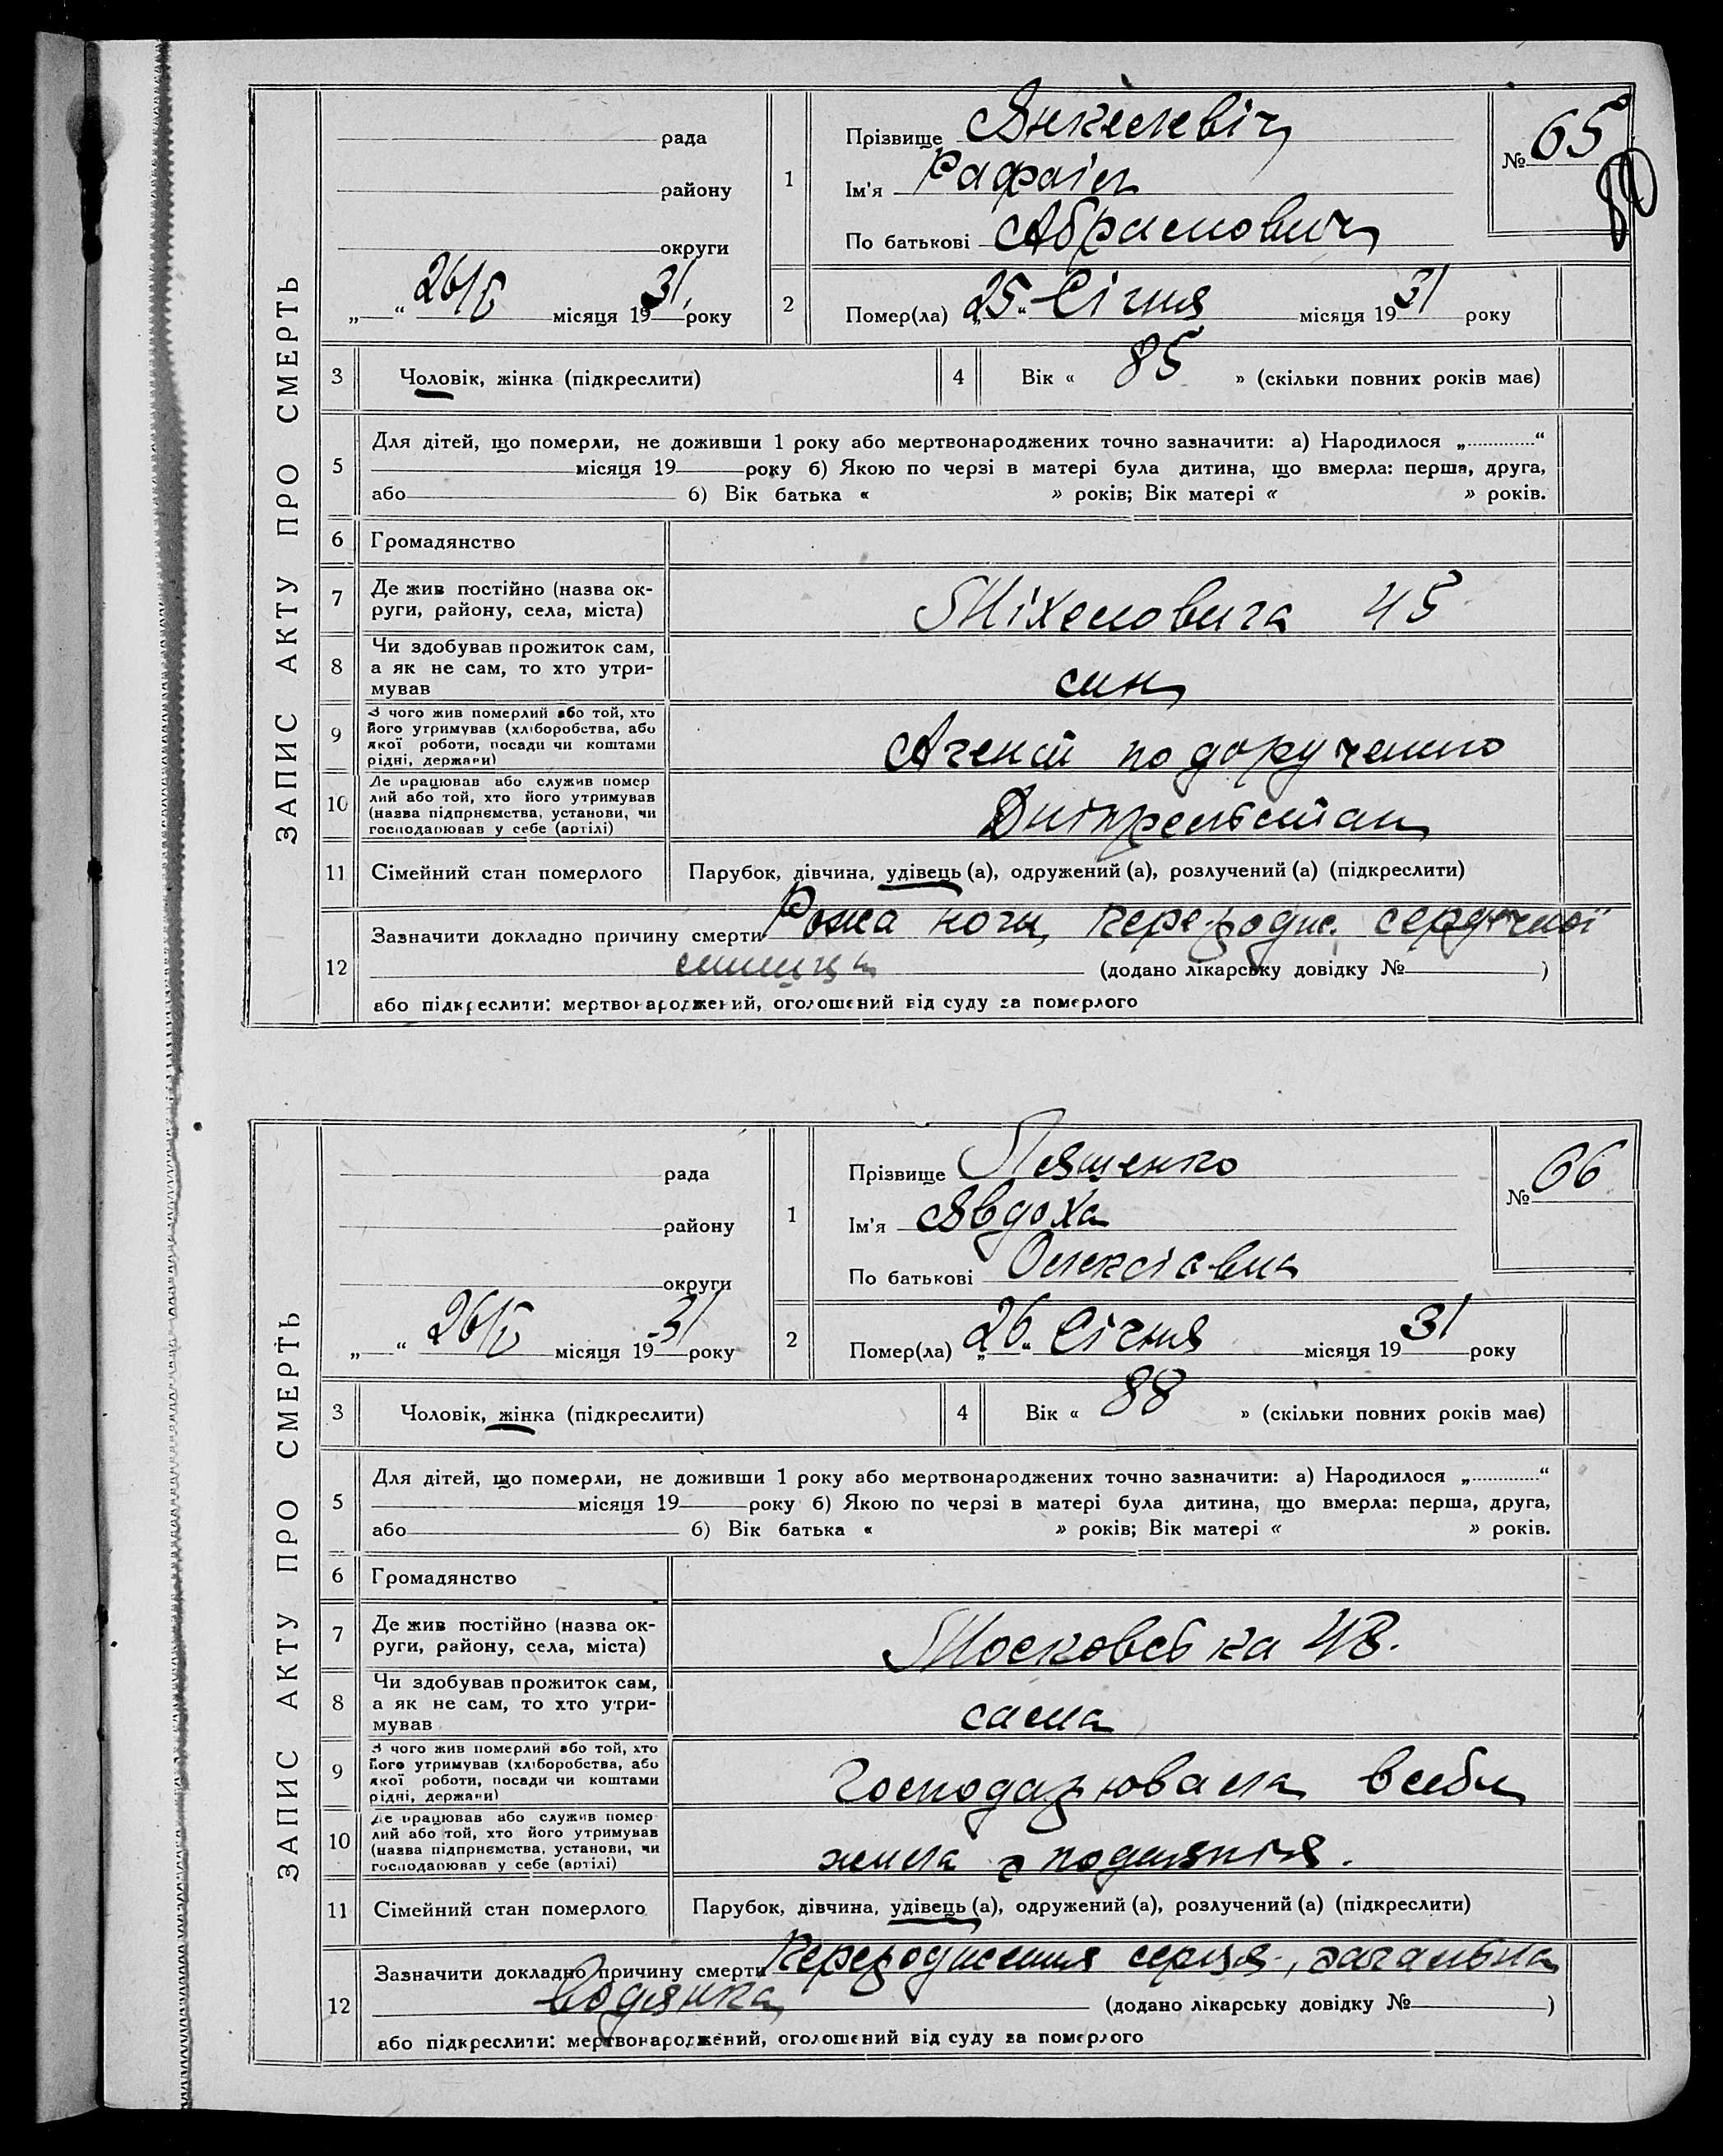 ЗАПИС АКТУ ПРО СМЕРТЬ
рада
району
округи
„ “ 26/I місяця 1931 року
1
Прізвище Янкелевіч
Ім'я Рафаіл
По батькові Абрамович
№ 65
80
2
Помер(ла) „25“ Січня місяця 1931 року
3
Чоловік, жінка (підкреслити)
4
Вік « 85 » (скільки повних років має)
5
Для дітей, що померли, не доживши 1 року або мертвонароджених точно зазначити: а) Народилося „ “
місяця 19 року б) Якою по черзі в матері була дитина, що вмерла: перша, друга,
або б) Вік батька « » років; Вік матері « » років.
6
Громадянство
7
Де жив постійно (назва ок-
руги, району, села, міста)
Міхемовича 45
8
Чи здобував прожиток сам,
а як не сам, то хто утри-
мував
син
9
З чого жив померлий або той, хто
його утримував (хліборобства, або
якої роботи, посади чи коштами
рідні, держави)
Агент по доручению
10
Де працював або служив помер
лий або той, хто його утримував
(назва підприємства, установи, чи
господарював у себе (артілі)
11
Сімейний стан померлого
Парубок, дівчина, удівець (а), одружений (а), розлучений (а) (підкреслити)
12
Зазначити докладно причину смерти Рожа ноги, перерождж. сердечної
мишци (додано лікарську довідку № )
або підкреслити: мертвонароджений, оголошений від суду за померлого
ЗАПИС АКТУ ПРО СМЕРТЬ
рада
району
округи
„ “ 26/I місяця 1931 року
1
Прізвище Лященко
Ім'я Явдоха
По батькові Олексіевна
№ 66
2
Помер(ла) „26“ Січня місяця 1931 року
3
Чоловік, жінка (підкреслити)
4
Вік « 88 » (скільки повних років має)
5
Для дітей, що померли, не доживши 1 року або мертвонароджених точно зазначити: а) Народилося „ “
місяця 19 року б) Якою по черзі в матері була дитина, що вмерла: перша, друга,
або б) Вік батька « » років; Вік матері « » років.
6
Громадянство
7
Де жив постійно (назва ок-
руги, району, села, міста)
Московська 43.
8
Чи здобував прожиток сам,
а як не сам, то хто утри-
мував
сама
9
З чого жив померлий або той, хто
його утримував (хліборобства, або
якої роботи, посади чи коштами
рідні, держави)
Господарювала в себе
10
Де працював або служив помер
лий або той, хто його утримував
(назва підприємства, установи, чи
господарював у себе (артілі)
жила з подаяння.
11
Сімейний стан померлого
Парубок, дівчина, удівець (а), одружений (а), розлучений (а) (підкреслити)
12
Зазначити докладно причину смерти Переродження серця, загальна
водянка (додано лікарську довідку № )
або підкреслити: мертвонароджений, оголошений від суду за померлого